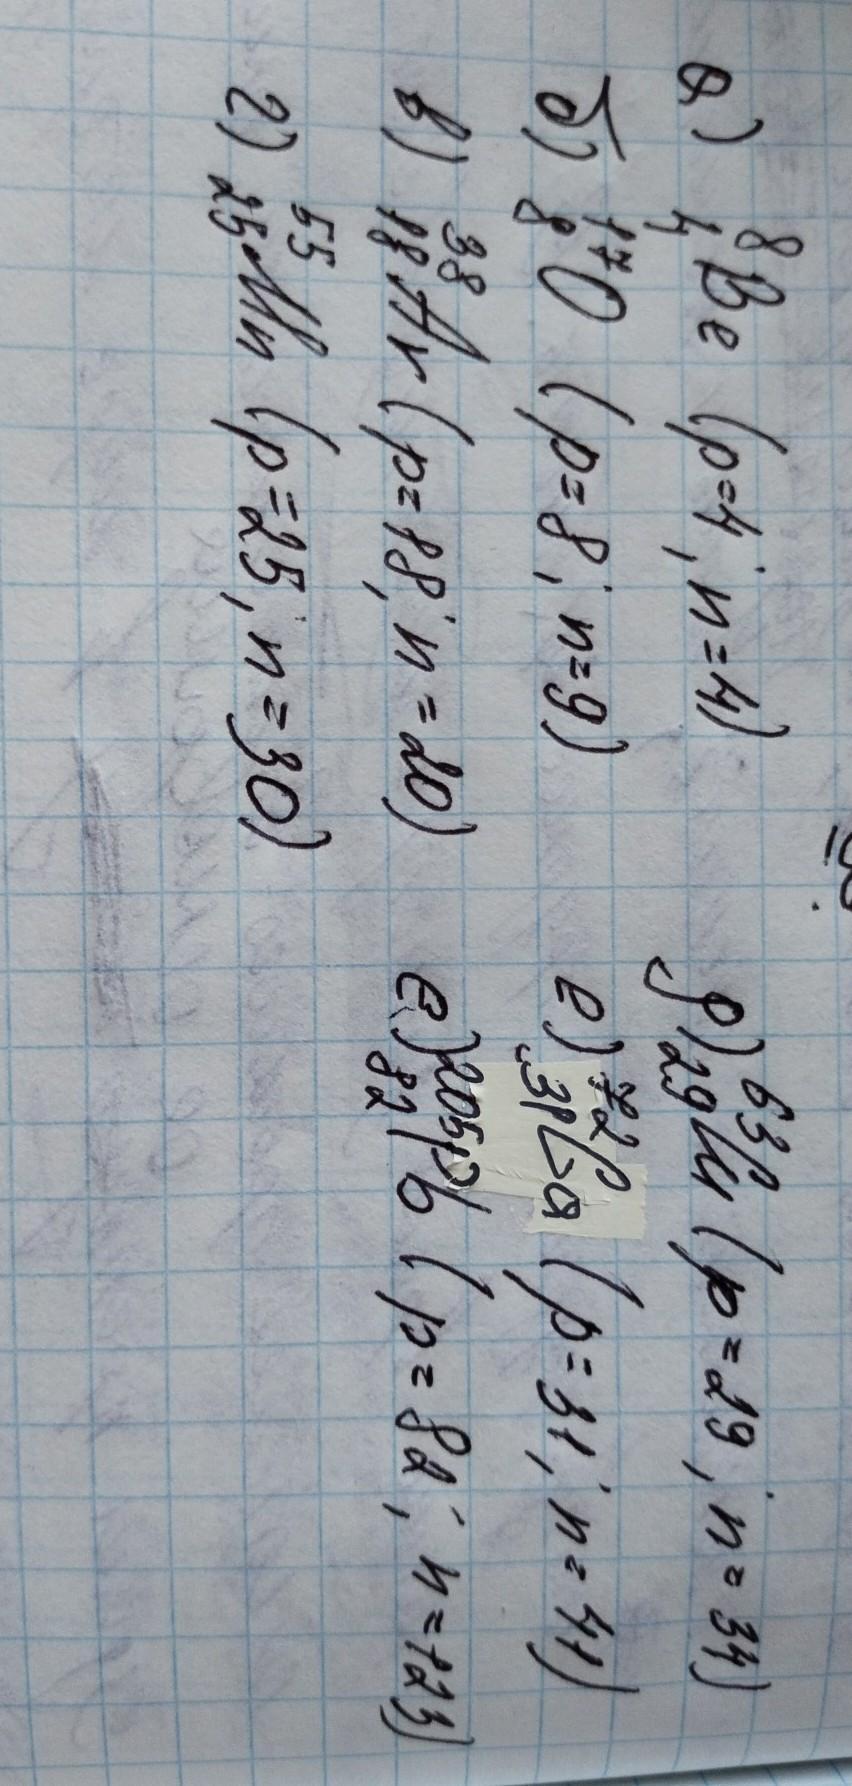 а) ⁸₄Be (p=4; n=4)
б) ¹⁷₈O (p=8; n=9)
в) ³⁸₁₈Ar (p=18; n=20)
г) ⁵⁵₂₅Mn (p=25; n=30)
д) ⁶³₂₉Cu (p=29; n=34)
е) ⁷²₃₁Ga (p=31; n=41)
е) ²⁰⁵₈₂Pb (p=82; n=123)